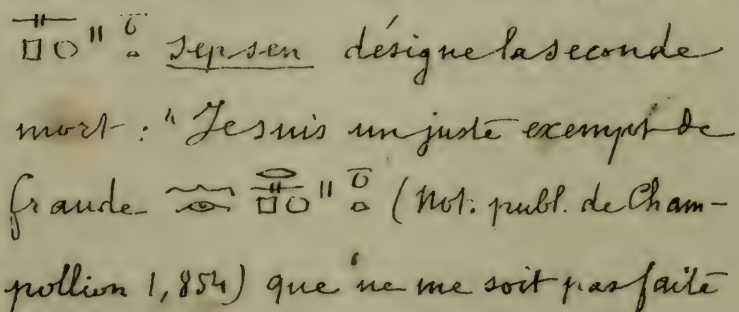 sepsen désigne la seconde
mort : "Je suis un juste exempt de
fraude (Not. publ. de Cham-
pollion 1,854) que ne me soit pas faite